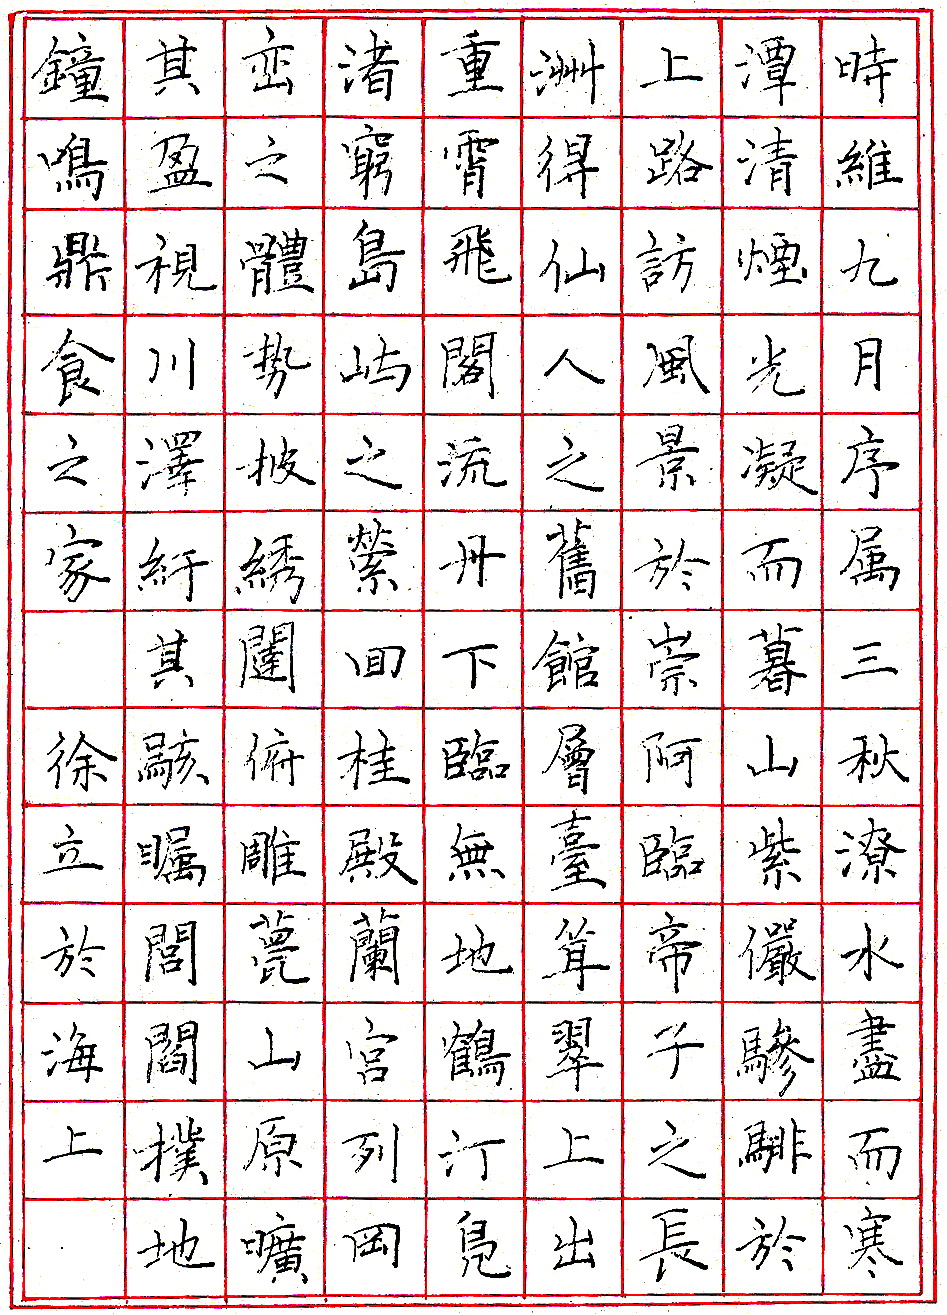 時維九月序属三秋潦水盡而寒
潭清煙光凝而暮山紫儼驂騑於
上路訪風景於崇阿臨帝子之長
洲得仙人之舊館層臺耸翠上出
重霄飛閣流丹下臨無地鶴汀鳧
渚窮島屿之縈回桂殿蘭宫列岡
峦之體势披綉闥俯雕甍山原曠
其盈視川澤紆其駭瞩閭閻撲地
鐘鳴鼎食之家 徐立於海上